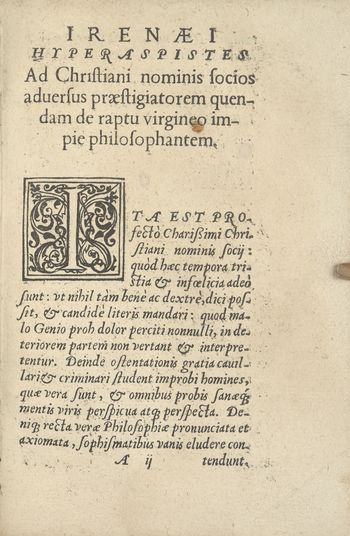 IRENÆI
HYPERASPISTES
Ad Chriſtiani nominis ſocios
aduerſus præſtigiatorem quen-
dam de raptu virgineo im-
pie philoſophantem.
ITA EST PRO-
fectò Charißimi Chri-
ſtiani nominis ſocij:
quòd hæc tempora tri-
ſtia & infœlicia adeò
ſunt: vt nihil tàm benè ac dextrè, dici poſ-
ſit, & candidè literis mandari: quod ma-
lo Genio proh dolor perciti nonnulli, in de-
teriorem partem non vertant & interpre-
tentur. Deinde oſtentationis gratia cauil-
lari & criminari ſtudent improbi homines,
quæ vera ſunt, & omnibus probis ſanæq́;
mentis viris perſpicua atq; perſpecta. De-
niq; recta veræ Philoſophiæ pronunciata et
axiomata, ſophiſmatibus vanis eludere con-
A ij tendunt.